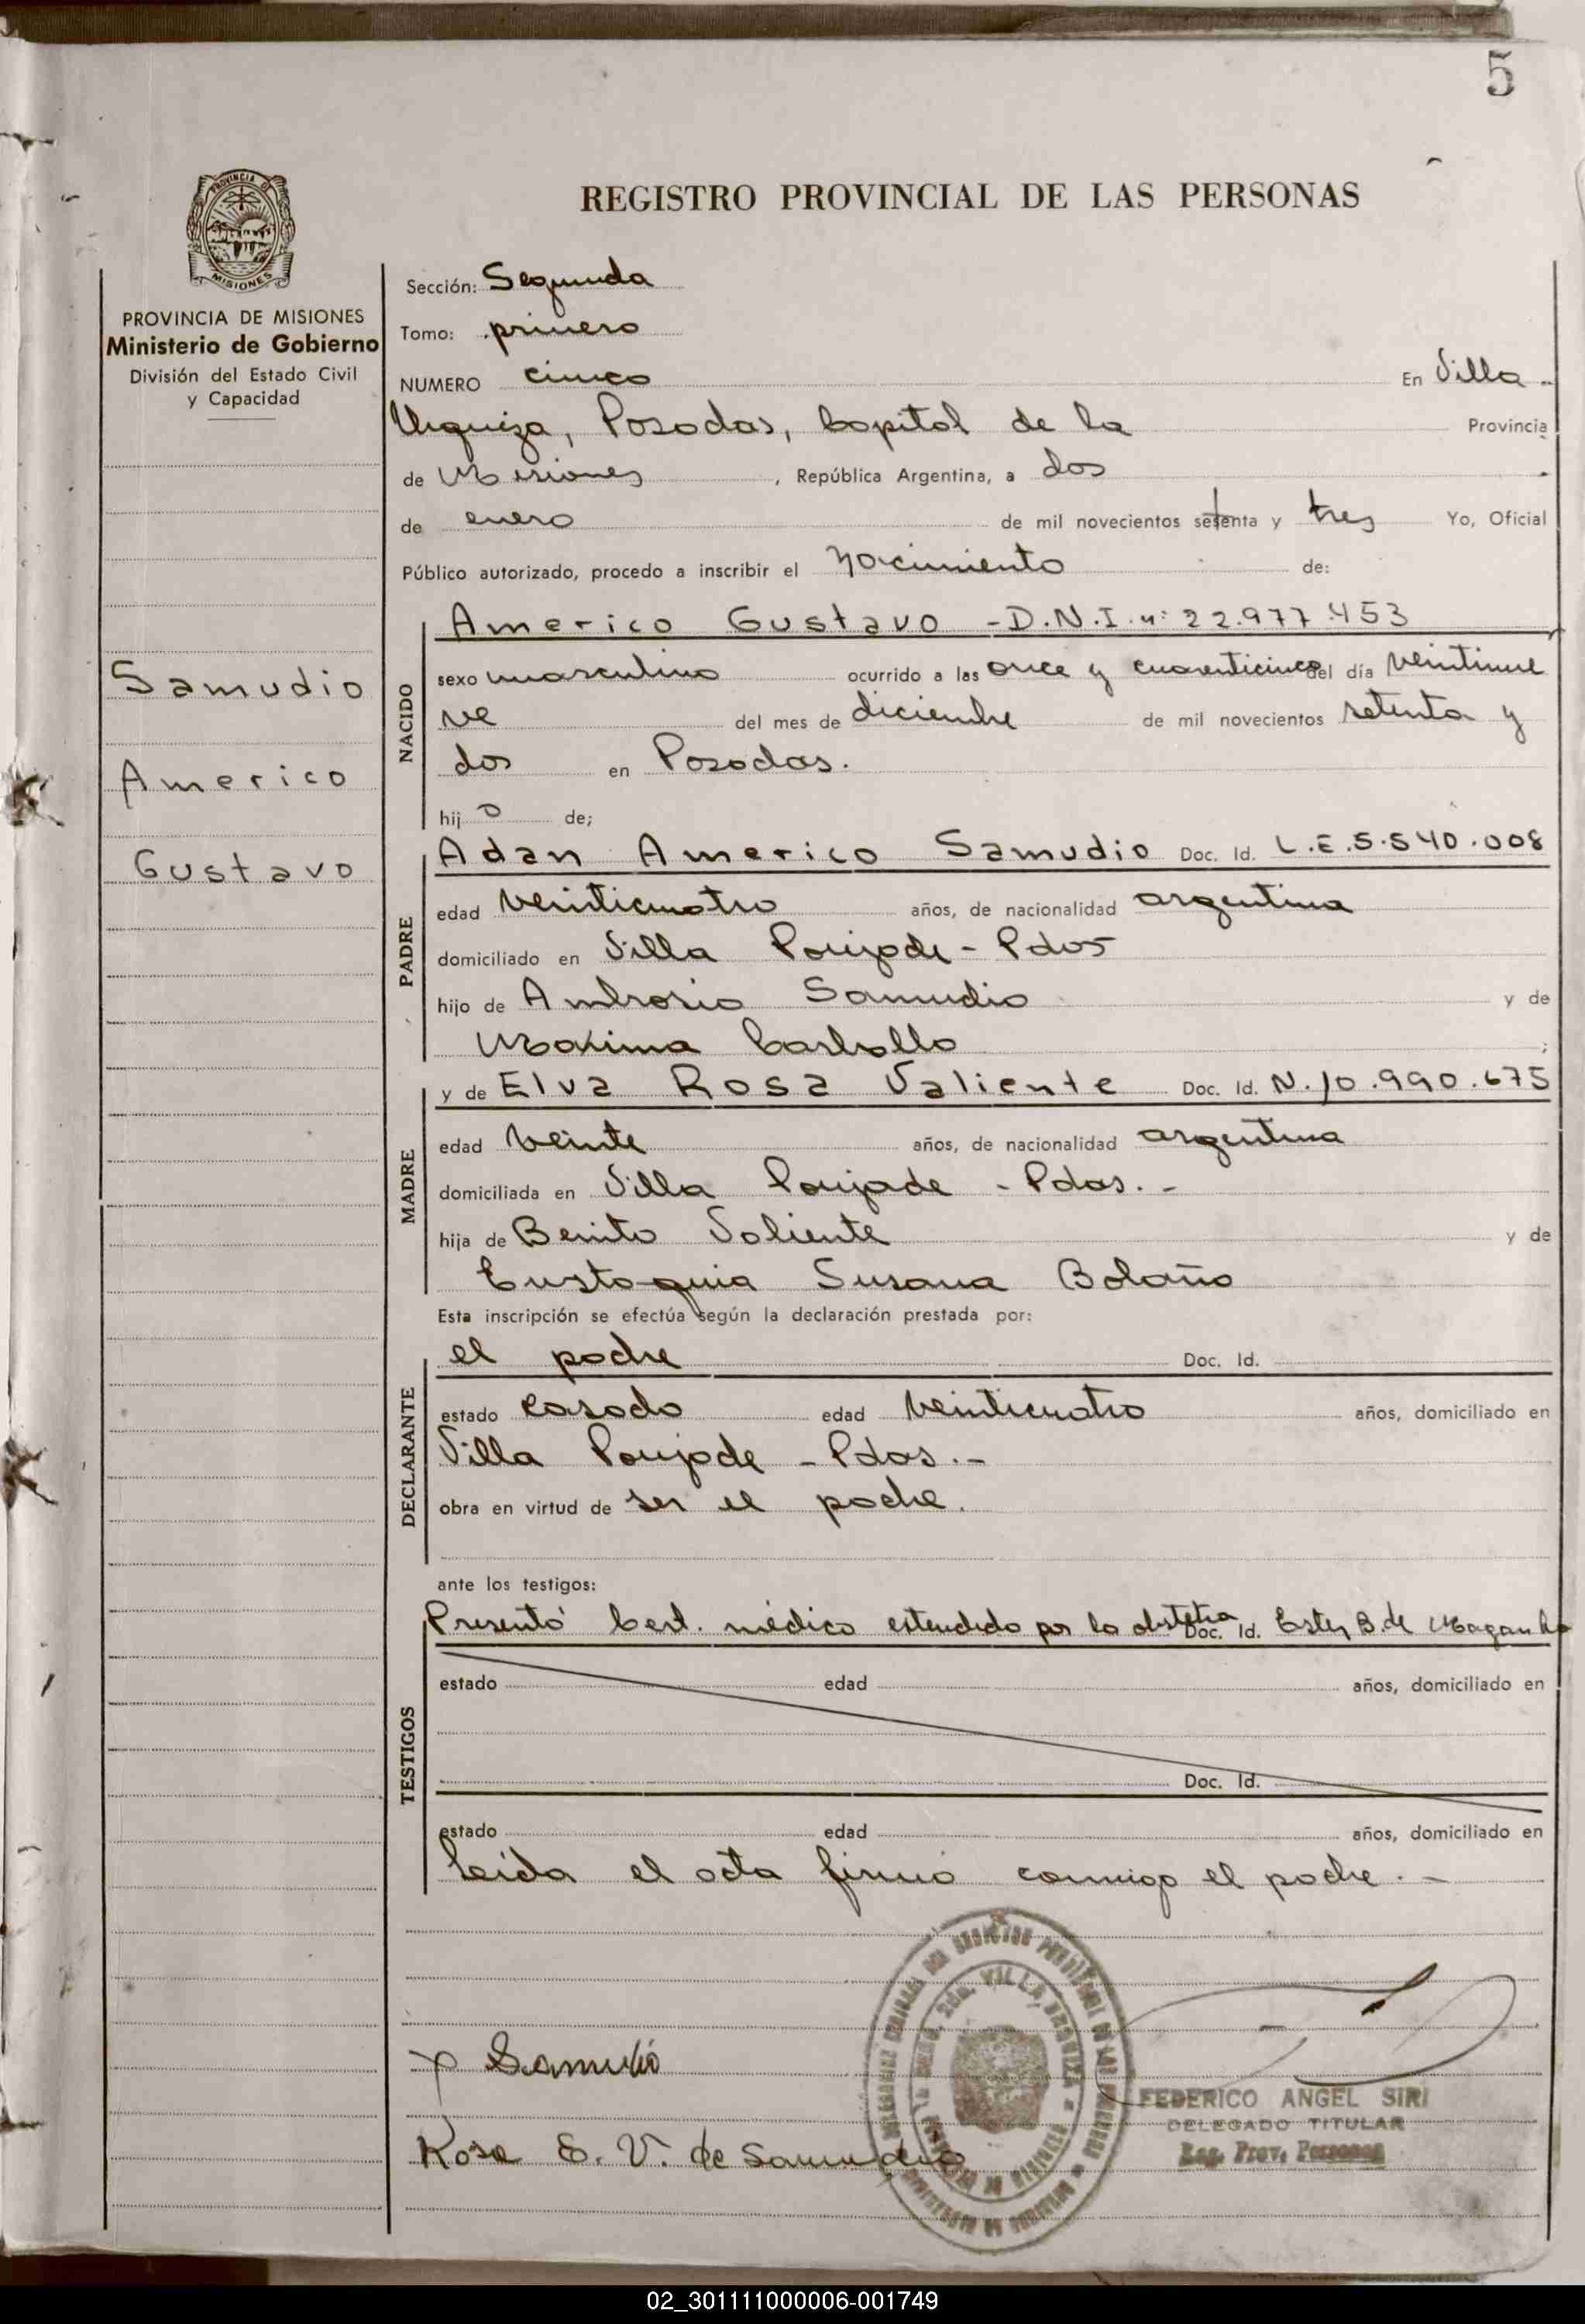 5
REGISTRO PROVINCIAL DE LAS PERSONAS
PROVINCIA DE MISIONES
PROVINCIA DE MISIONES
Ministerio de Gobierno
División del Estado Civil
y Capacidad
Samudio
Americo
Gustavo
Sección: Segunda
Tomo: primero
NUMERO cinco En Villa
Urquiza, Posadas, Capital de la Provincia
de Misiones, República Argentina, a dos
de enero de mil novecientos setenta y tres Yo, Oficial
Público autorizado, procedo a inscribir el Nacimiento de:
NACIDO
Americo Gustavo - D.N.I. nº 22.977.453
sexo masculino ocurrido a las once y cuarenticinco del día veintinue
ve del mes de diciembre de mil novecientos setenta y
dos en Posadas.
hijo de;
PADRE
Adan Americo Samudio Doc. Id. L.E.5.540.008
edad veinticuatro años, de nacionalidad argentina
domiciliado en Villa Poujade - Pdas
hijo de Ambrosio Samudio y de
Maxima Carballo ;
MADRE
y de Elva Rosa Valiente Doc. Id. N.10.990.675
edad veinte años, de nacionalidad argentina
domiciliada en Villa Poujade - Pdas. -
hija de Benito Valiente y de
Eustaquia Susana Bolaño
Esta inscripción se efectúa según la declaración prestada por:
DECLARANTE
el padre Doc. Id.
estado casado edad veinticuatro años, domiciliado en
Villa Poujade - Pdas. -
obra en virtud de ser el padre.
ante los testigos:
TESTIGOS
Presentó Cert. médico extendido por la obstetra Doc. Id. Ester B. de
estado edad años, domiciliado en
Doc. Id.
estado edad años, domiciliado en
Leída el acta firmó conmigo el padre. -
Samudio
Rosa E. V. de Samudio
VILLA URQUIZA
FEDERICO ANGEL SIRI
DELEGADO TITULAR
Reg. Prov. Personas
02_301111000006-001749